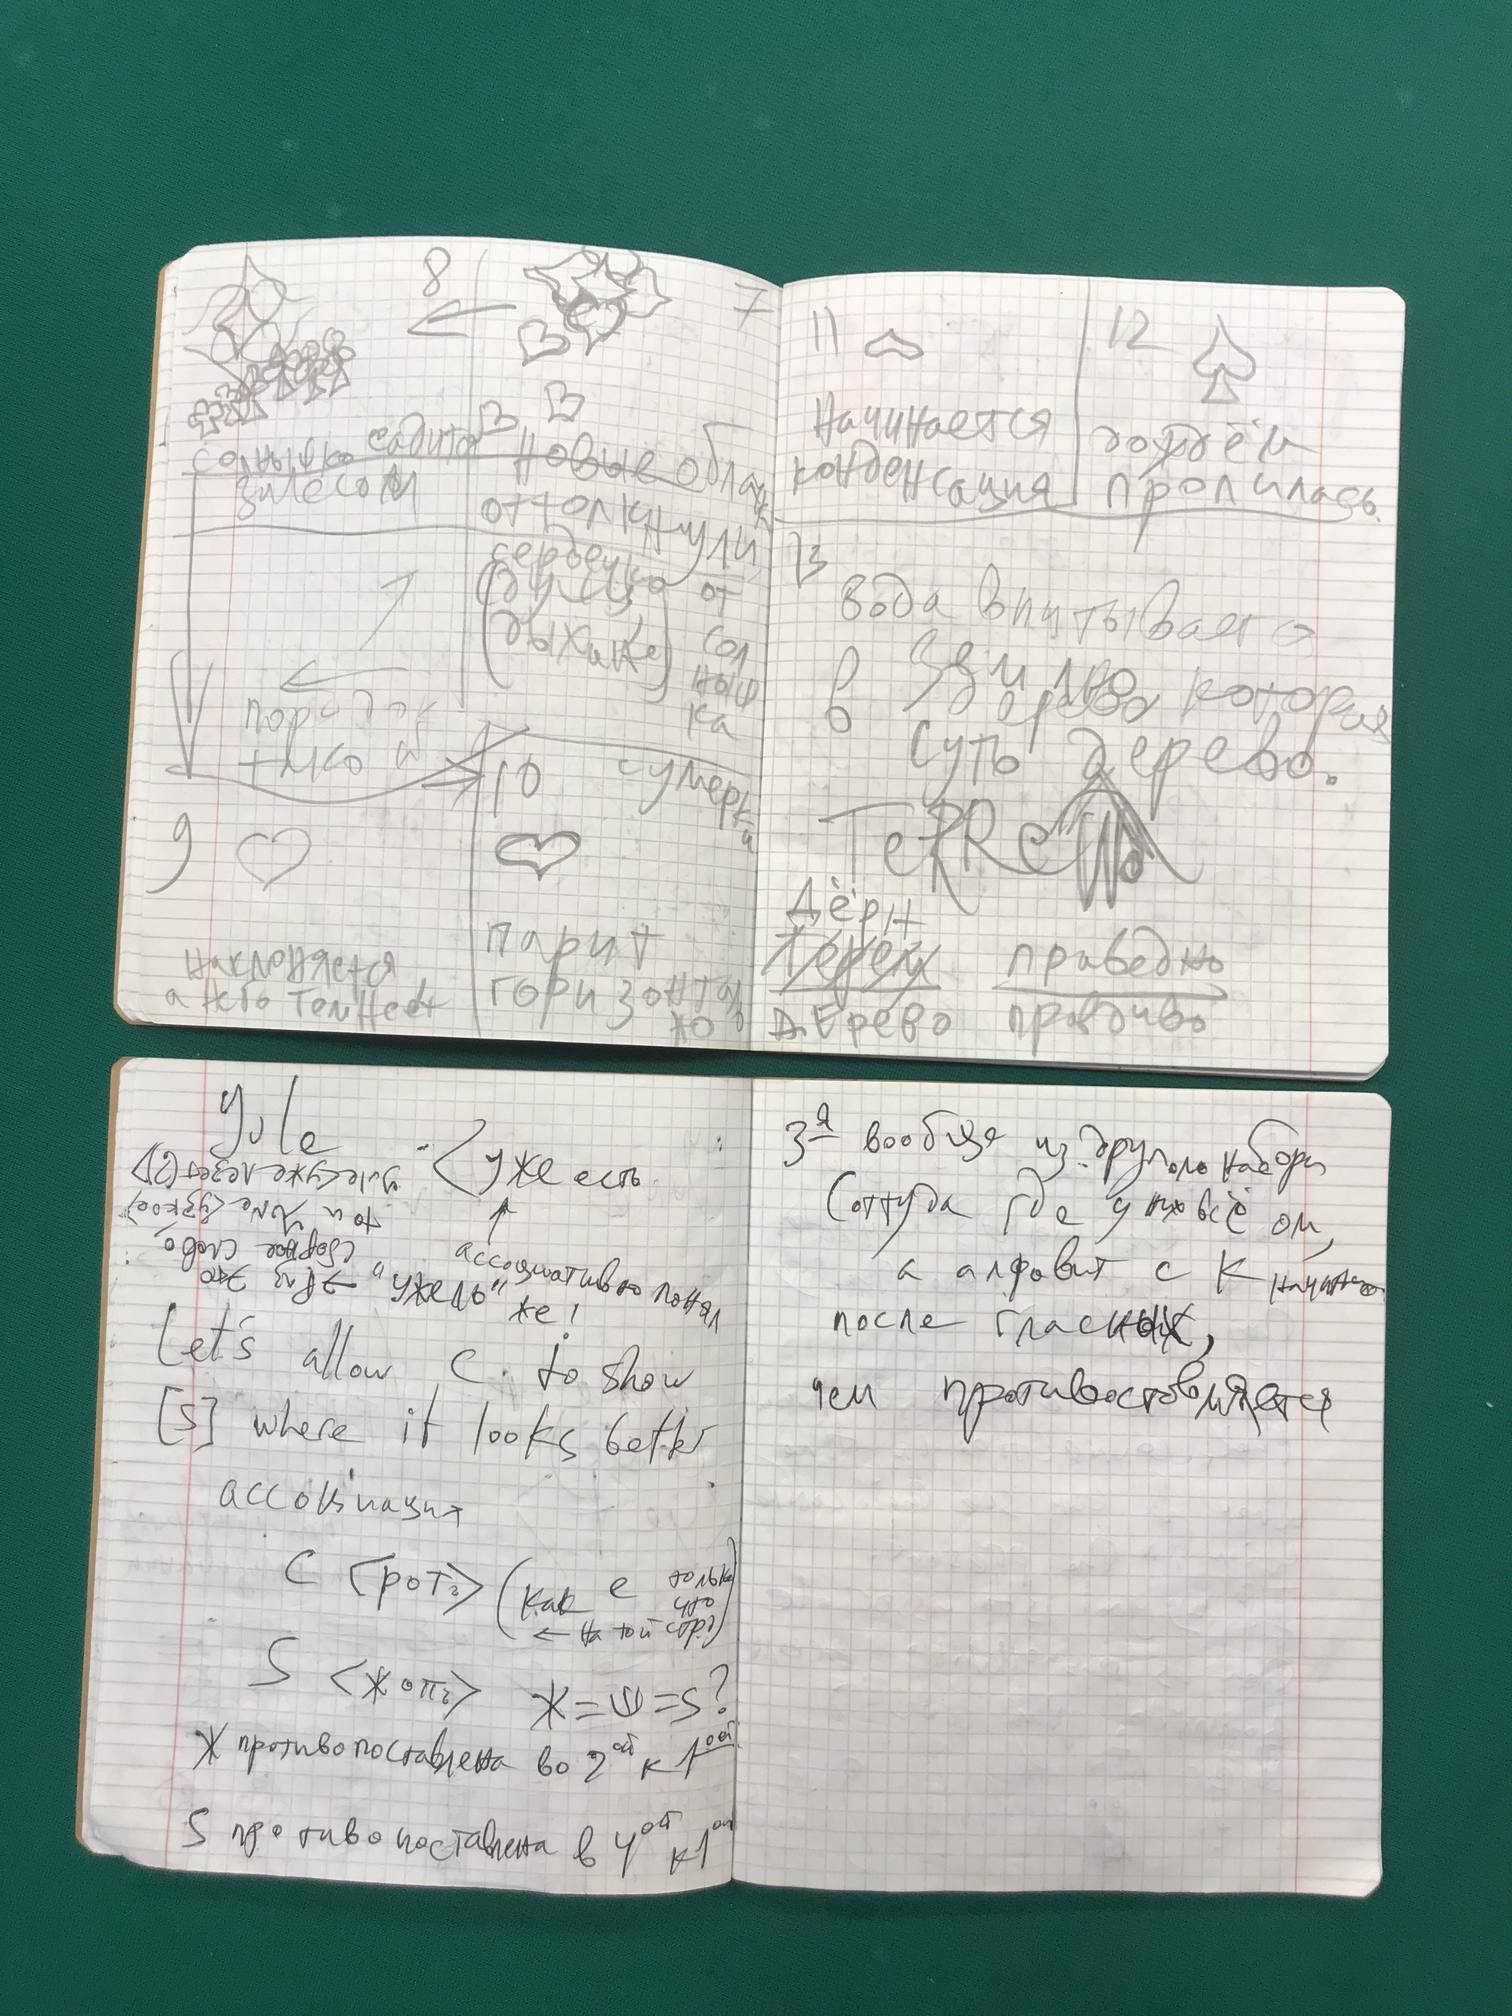 8
7
солнышко садится
за лесом
новые облачк
оттолкнули
сердечко
(душу,
дыхание)
от
сол
ныш
ка
9
наклоняется
а небо темнеет
10
сумерки
парит
горизонталь
но
11
начинается
конденсация
12
дождём
пролилась.
13
вода впитывается
в землю которая
в дерево
суть дерево.
TeRRa
Дёрн
Дерево
праведно
правдиво
Yule
< уже есть
ассоциативно понял
же!
сборное слово
"ужель"
Let's allow C to show
[S] where it looks better
ассоциация
C <рот2> (как e только
что
← на той стр)
S <жоп2> Ж=Ш=S?
Ж противопоставлена во 2ой к 1ой
S противопоставлена в 4ой к 1ой
3я вообще из другого набора
(оттуда где у них всё ом,
а алфавит с К начинается
после гласных,
чем противоставляется